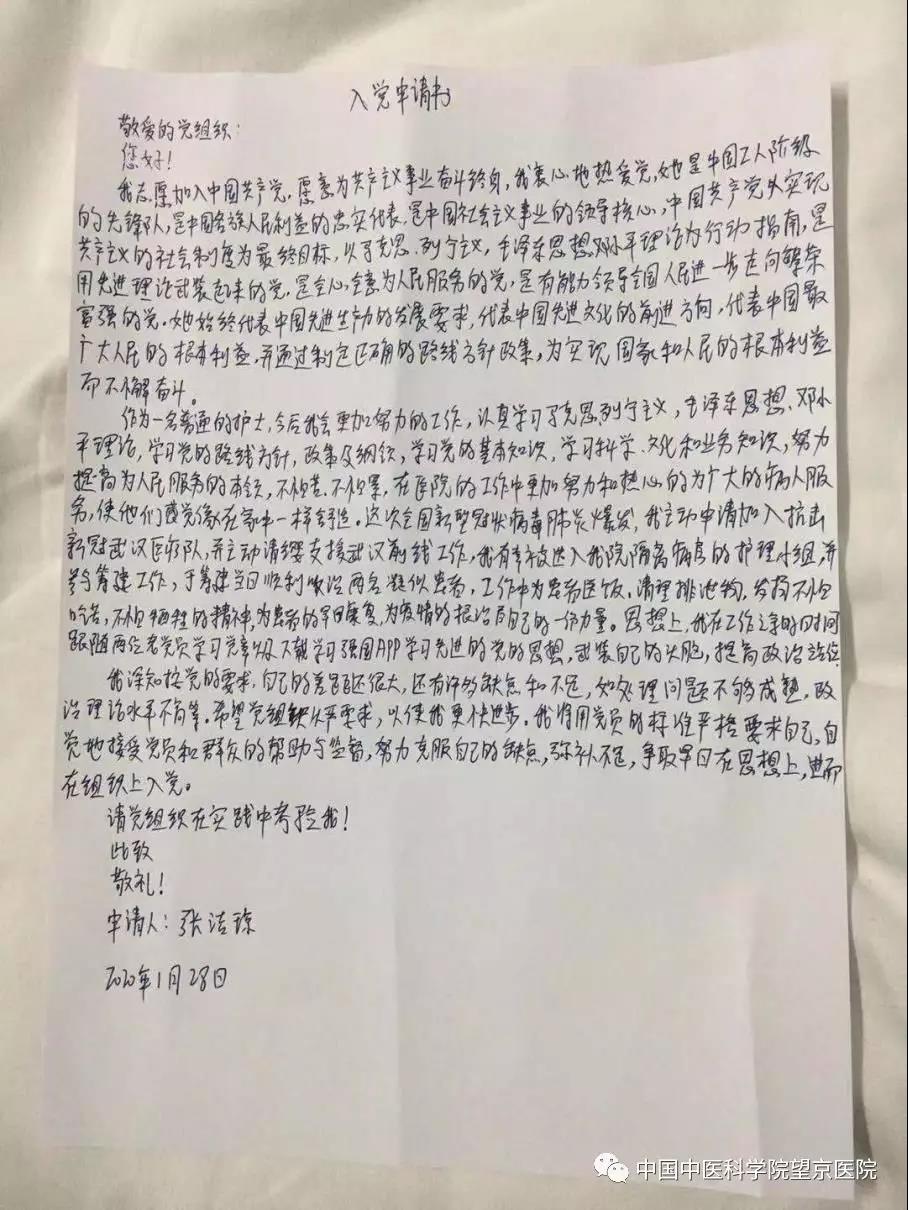 入党申请书
敬爱的党组织：
您好！
我志愿加入中国共产党，愿意为共产主义事业奋斗终身，我衷心地热爱党，她是中国工人阶级
的先锋队，是中国各族人民利益的忠实代表，是中国社会主义事业的领导核心，中国共产党以实现
共产主义的社会制度为最终目标，以马克思、列宁主义，毛泽东思想邓小平理论为行动指南，是
用先进理论武装起来的党，是全心全意为人民服务的党，是有能力领导全国人民进一步走向繁荣
富强的党。她始终代表中国先进生产力的发展要求，代表中国先进文化的前进方向，代表中国最
广大人民的根本利益，并通过制定正确的路线方针政策，为实现国家和人民的根本利益
而不懈奋斗。
作为一名普通的护士，今后我会更加努力的工作，认真学习马克思列宁主义，毛泽东思想、邓小
平理论，学习党的路线方针，政策及纲领，学习党的基本知识，学习科学、文化和业务知识，努力
提高为人民服务的本领，不怕苦、不怕累，在医院的工作中更加努力和热心的为广大的病人服
务，使他们感觉像在家中一样舒适。这次全国新型冠状病毒肺炎爆发，我主动申请加入抗击
新冠武汉医疗队，并主动请缨支援武汉前线工作，我有幸被选入我院隔离病房的护理小组，并
参与筹建工作，于筹建当日顺利收治两名疑似患者，工作中为患者送饭、清理排泄物，发药不怕
吃苦，不怕牺牲的精神，为患者的早日康复，为疫情的根治自己的一份力量。思想上，我在工作之余的时间
跟随两位老党员学习党章以及下载学习强国APP学习先进的党的思想，武装自己的头脑，提高政治站位
我深知按党的要求，自己的差距还很大，还有许多缺点和不足，如处理问题不够成熟，政
治理论水平不高等。希望党组织从严要求，以使我更快进步。我将用党员的标准严格要求自己，自
觉地接受党员和群众的帮助与监督，努力克服自己的缺点，弥补不足，争取早日在思想上，进而
在组织上入党。
请党组织在实践中考验我！
此致
敬礼！
申请人：张洁琼
2020年1月28日
中国中医科学院望京医院